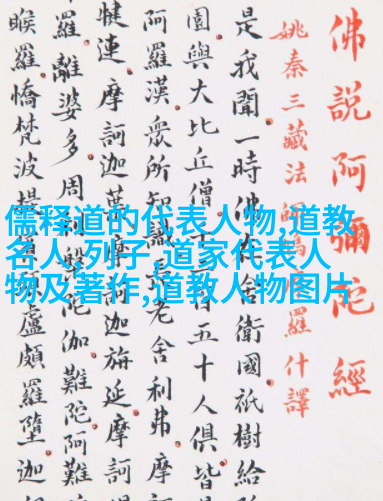 儒释道的代表人物,道教
名人,列子,道家代表人
物及著作,道教人物图片
佛說阿彌陀經
姚秦三藏法師鳩摩羅什譯
是我聞一時佛在舍衛國祇樹給
園與大比丘僧五十人俱皆
阿羅漢眾所知識長老舍利弗摩
犍連摩訶迦葉摩訶迦旃延摩訶
羅離婆多周利槃陀伽難陀阿難
睺羅憍梵波提盧頗羅墮迦